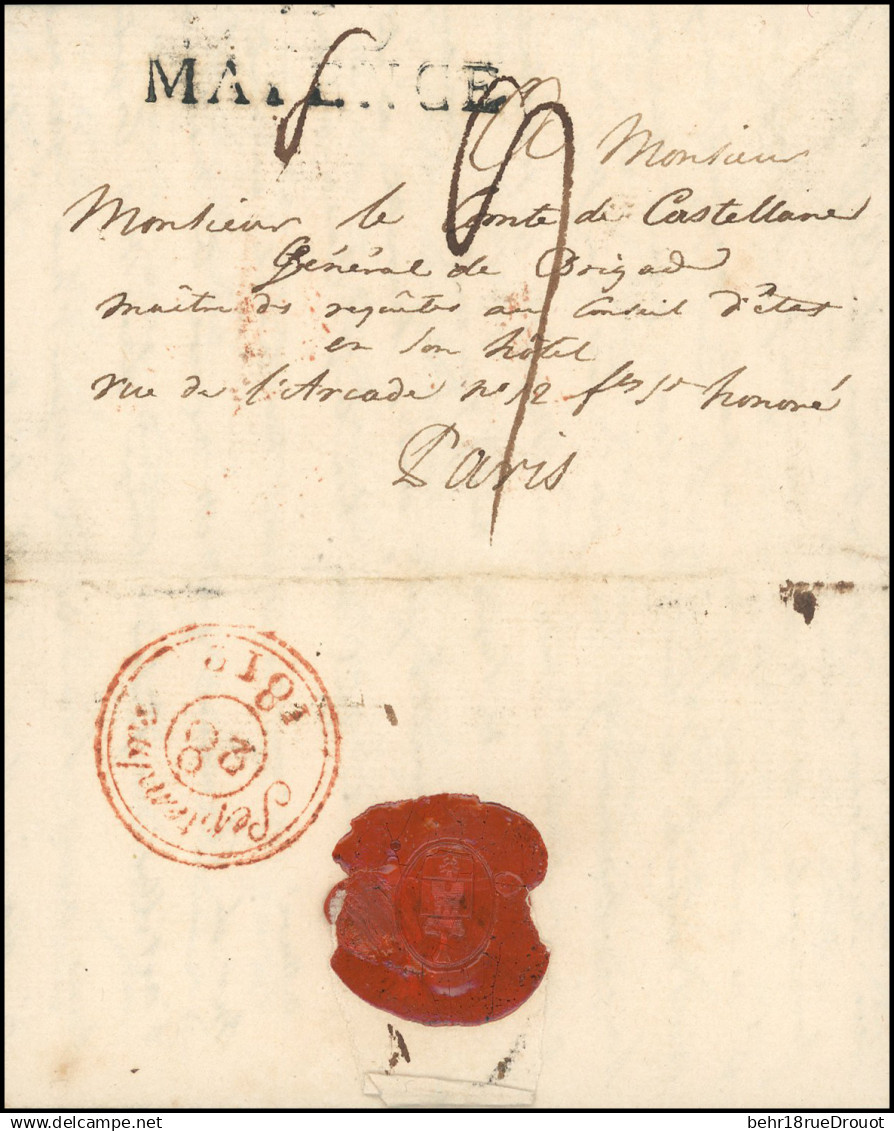 MAYENCE
A Monsieur
Monsieur le Comte de Castellane
Général de Brigade
maître des requêtes au Conseil d'état
en son hôtel
rue de l'Arcade no 12 fbg St honoré
Paris
Septembre
28
behr18rueDrouot